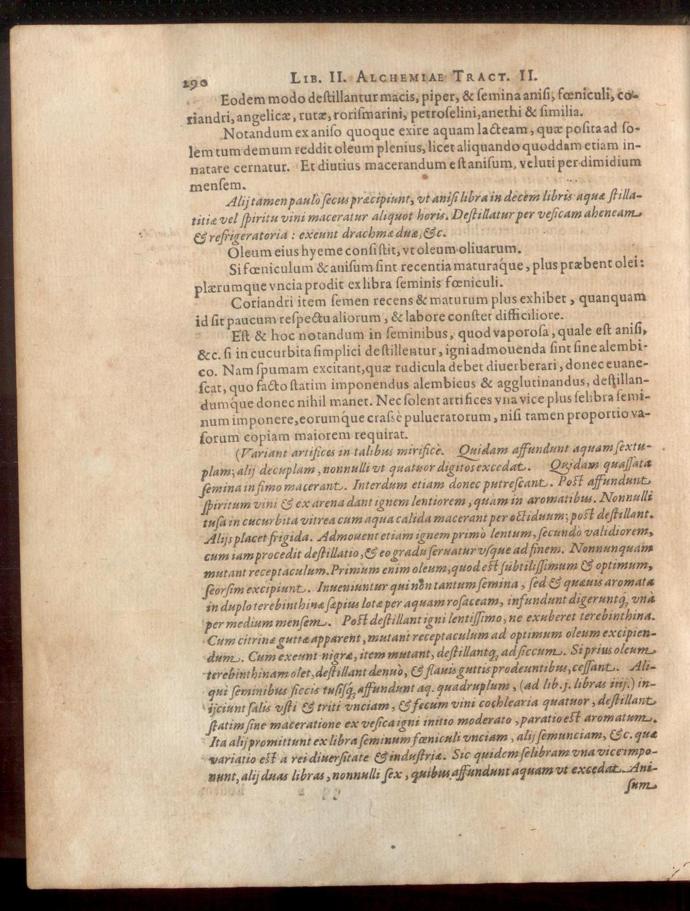 290 LIB. II. ALCHEMIAE TRACT. II.
Eodem modo destillantur macis, piper, & semina anisi, fœniculi, co-
riandri, angelicæ, rutæ, rorismarini, petroselini, anethi & similia.
Notandum ex aniso quoque exire aquam lacteam, quæ posita ad so-
lem tum demum reddit oleum plenius, licet aliquando quoddam etiam in-
natare cernatur. Et diutius macerandum est anisum, veluti per dimidium
mensem.
Alij tamen paulò secus præcipiunt, vt anisi libra in decem libris aquæ stilla-
titiæ vel spiritu vini maceratur aliquot horis. Destillatur per vesicam aheneam
& refrigeratoria: exeunt drachmæ duæ, &c.
Oleum eius hyeme consistit, vt oleum oliuarum.
Si fœniculum & anisum sint recentia maturaque, plus præbent olei:
plærumque vncia prodit ex libra seminis fœniculi.
Coriandri item semen recens & maturum plus exhibet, quanquam
id sit paucum respectu aliorum, & labore constet difficiliore.
Est & hoc notandum in seminibus, quod vaporosa, quale est anisi,
&c. si in cucurbita simplici destillentur, igni admouenda sint sine alembi-
co. Nam spumam excitant, quæ rudicula debet diuerberari, donec euane-
scat, quo facto statim imponendus alembicus & agglutinandus, destillan-
dumque donec nihil manet. Nec solent artifices vna vice plus selibra semi-
num imponere, eorumque crassè pulueratorum, nisi tamen proportio va-
sorum copiam maiorem requirat.
(Variant artifices in talibus mirificè. Quidam affundunt aquam sextu-
plam; alij decuplam, nonnulli vt quatuor digitos excedat. Quidam quassata
semina in fimo macerant. Interdum etiam donec putrescant. Post affundunt
spiritum vini & ex arena dant ignem lentiorem, quam in aromatibus. Nonnulli
tusa in cucurbita vitrea cum aqua calida macerant per octiduum; pòst destillant.
Alijs placet frigida. Admouent etiam ignem primò lentum, secundò validiorem,
cum iam procedit destillatio, & eo gradu seruatur vsque ad finem. Nonnunquam
mutant receptaculum. Primum enim oleum, quod est subtilissimum & optimum,
seorsim excipiunt. Inueniuntur qui non tantum semina, sed & quæuis aromata
in duplo terebinthinæ sæpius lotæ per aquam rosaceam, infundunt digeruntq́; vnà
per medium mensem. Pòst destillant igni lentissimo, ne exuberet terebinthina.
Cum citrinæ guttæ apparent, mutant receptaculum ad optimum oleum excipien-
dum. Cum exeunt nigræ, item mutant, destillantq́; ad siccum. Si prius oleum
terebinthinam olet, destillant denuò, & flauis guttis prodeuntibus, cessant. Ali-
qui seminibus siccis tusisq́; affundunt aq. quadruplum, (ad lib. j. libras iiij.) in-
ijciunt salis vsti & triti vnciam, & fecum vini cochlearia quatuor, destillant
statim sine maceratione ex vesica igni initio moderato, paratio est aromatum.
Ita alij promittunt ex libra seminum fœniculi vnciam, alij semunciam, &c. quæ
variatio est a rei diuersitate & industriæ. Sic quidem selibram vna vice impo-
nunt, alij duas libras, nonnulli sex, quibus affundunt aquam vt excedat. Ani-
sum